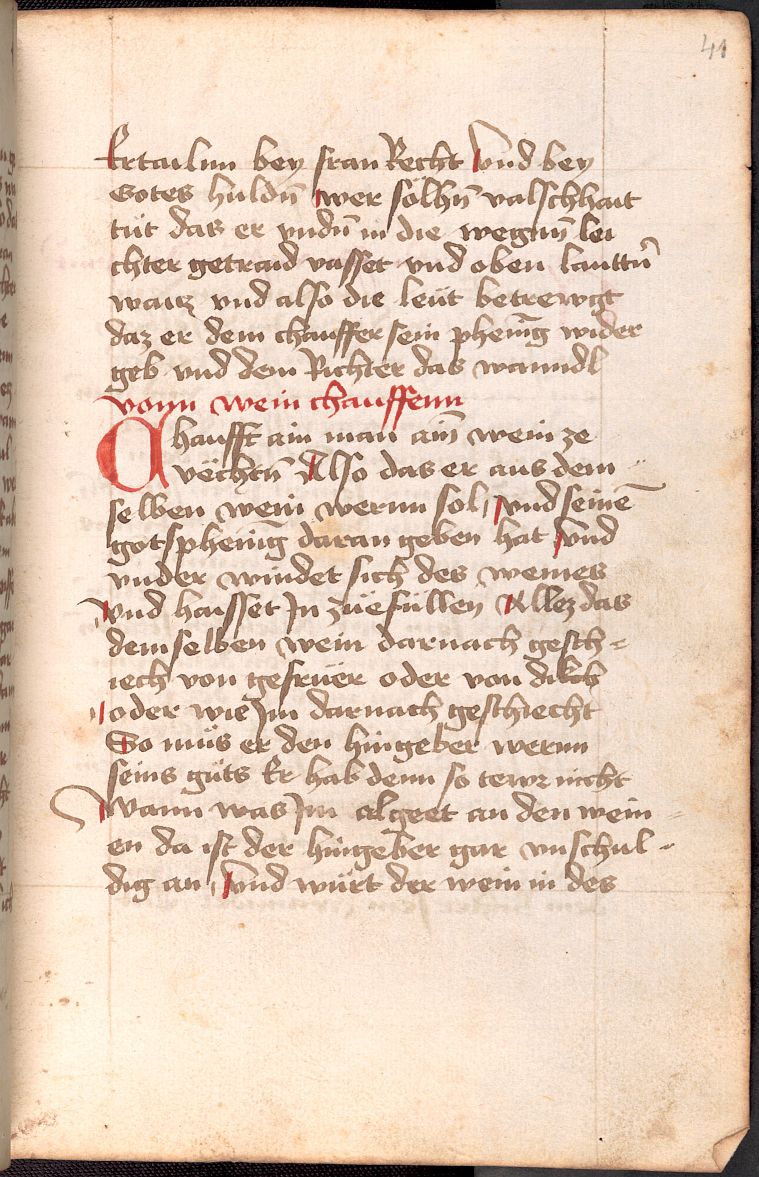 41
Ertailnn bey fran Recht vnd bey
Gotes huldn̄ wer sölhn̄ valschhait
tüt das er vndn̄ in die wegnn̄ lei
chter getraid vasset vnd oben lauttn̄
waicz vnd also die leüt betrewgt
daz er dem chauffer sein phenīg wider
geb vnd dem Richter das wanndl
vonn wein chauffenn
Chaufft ain man ain̄ wein ze
vëchsn̄ Also das er aus dem
selben wein wernn sol vnd seinē
gotsphenīg daran geben hat vnd
vnder windet sich des weines
vnd haisset Jn züefüllen Allez das
demselben wein darnach gesch-
iech von gefruer oder von
oder wie Jm darnach geschiecht
So müs er den hingeber wernn
seins güts Er hab denn so tewr nicht
Wann was Jm abgeet an den wein
en da ist der hingeber gar vnschul-
dig an vnd würt der wein in des